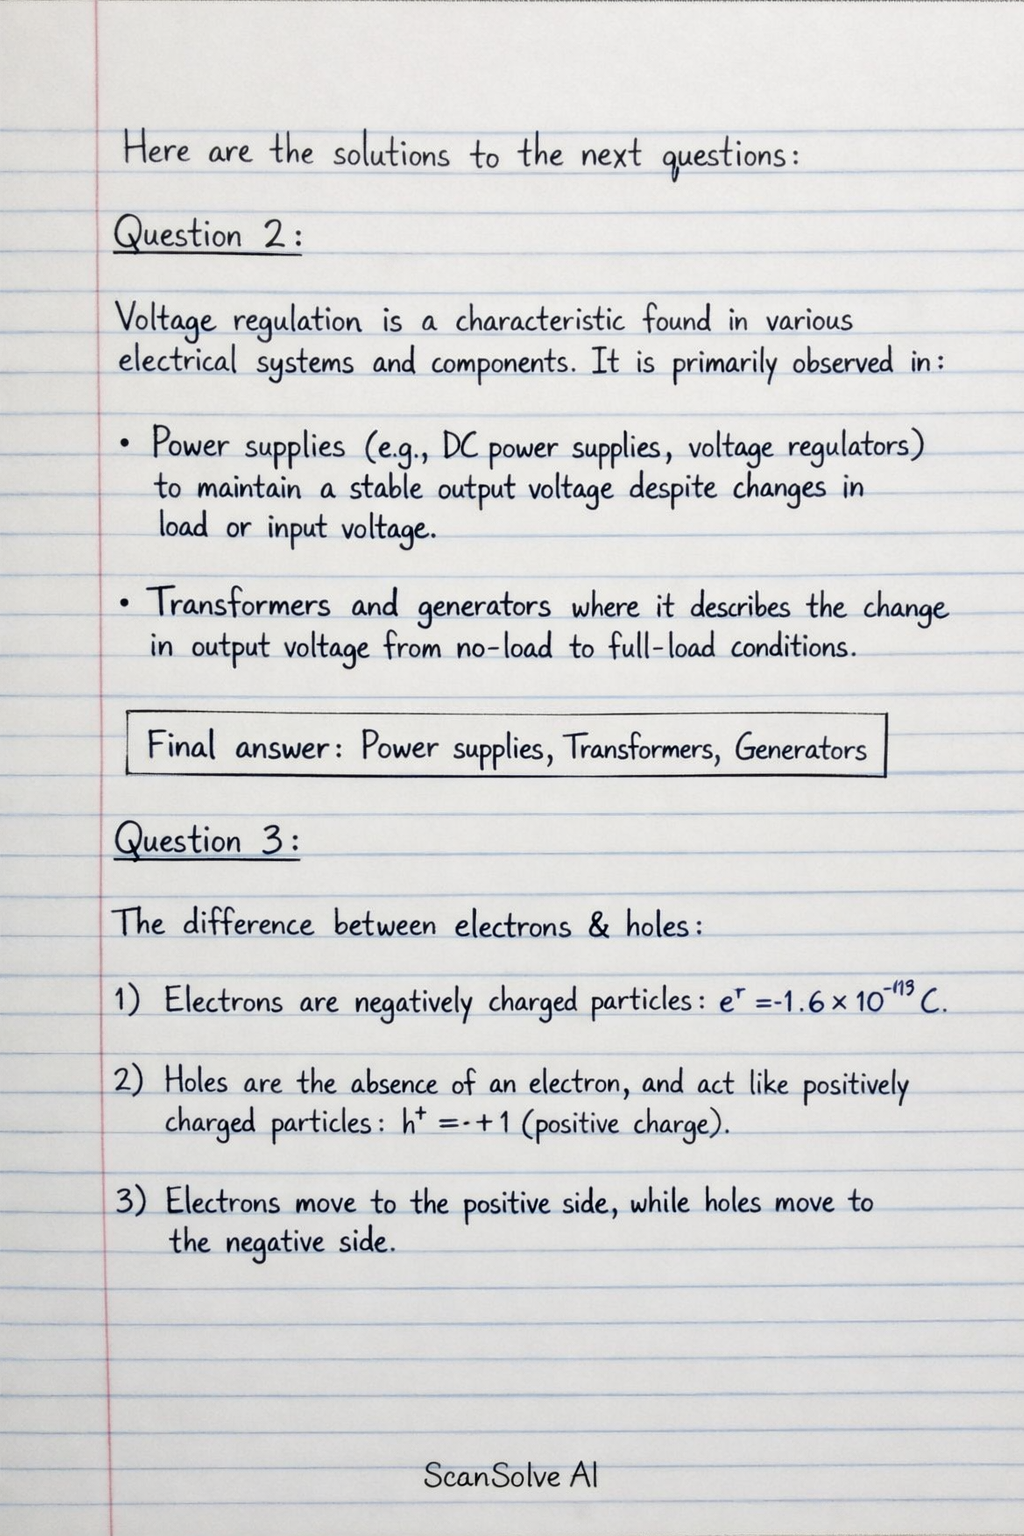 Here are the solutions to the next questions:
Question 2:
Voltage regulation is a characteristic found in various
electrical systems and components. It is primarily observed in:
• Power supplies (e.g., DC power supplies, voltage regulators)
to maintain a stable output voltage despite changes in
load or input voltage.
• Transformers and generators where it describes the change
in output voltage from no-load to full-load conditions.
Final answer: Power supplies, Transformers, Generators
Question 3:
The difference between electrons & holes:
1) Electrons are negatively charged particles: = -1.6 × 10 C.
2) Holes are the absence of an electron, and act like positively
charged particles: h⁺ =-+1 (positive charge).
3) Electrons move to the positive side, while holes move to
the negative side.
ScanSolve AI